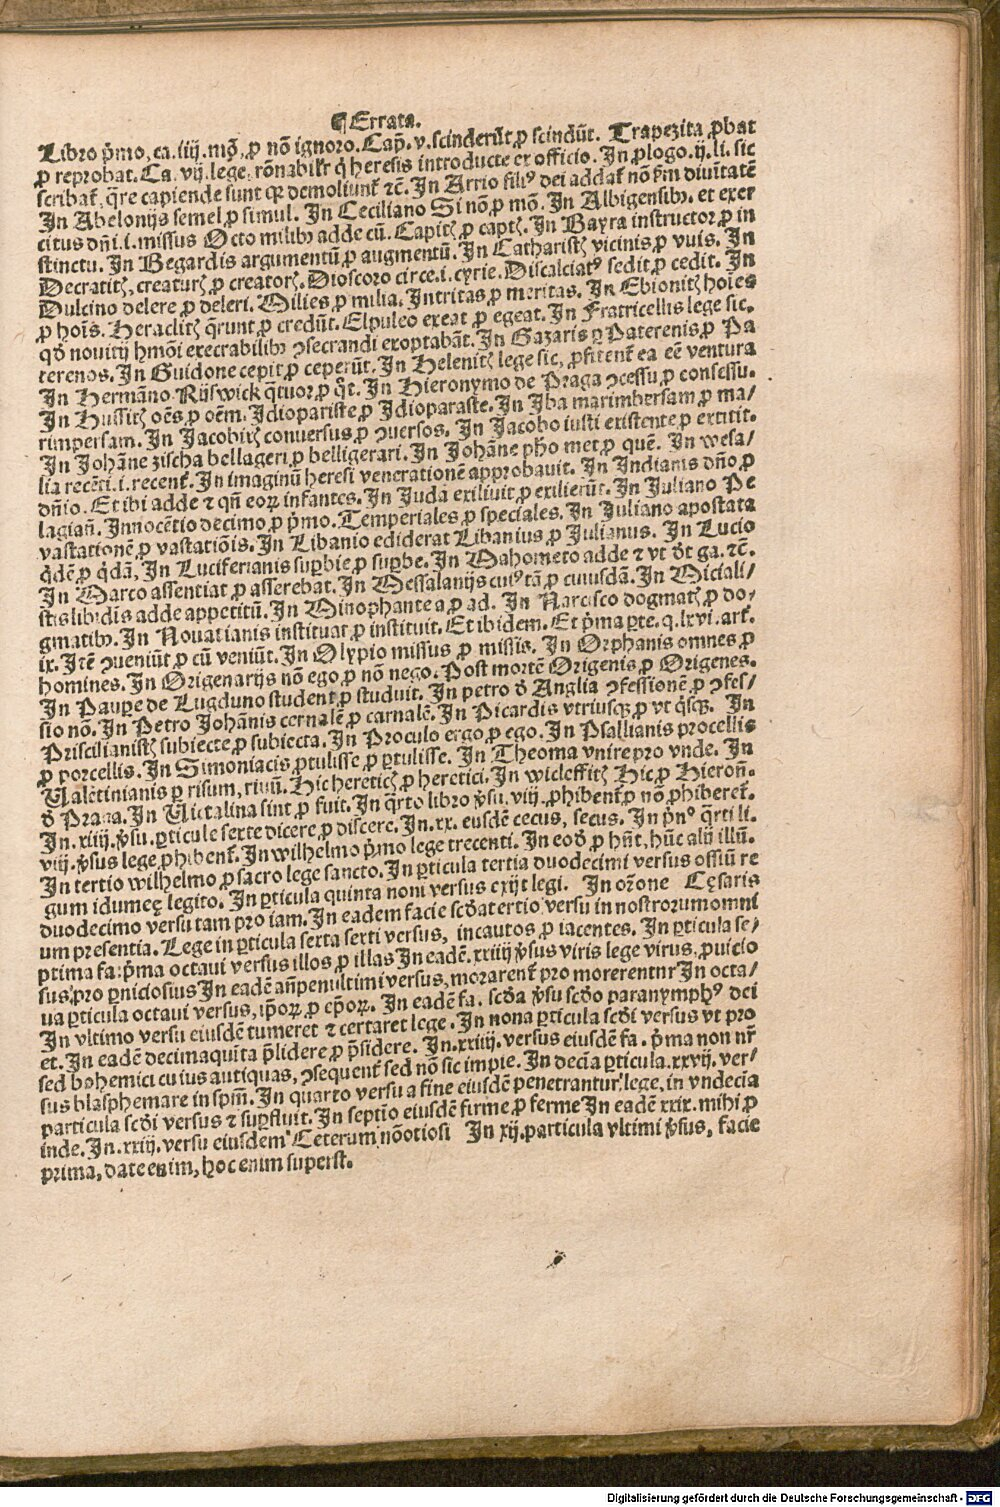 ¶ Errata.
Libro p̄mo, ca. iiij. mō, ꝓ nō ignoro. Cap̄. v. scinderūt ꝓ scindūt. Trapezita ꝓbat
ꝓ reprobat. Ca. vij. lege, rōnabilr̄ q̄ heresis introducte ex officio. In ꝓlogo. ij. li. sic
scribat᷑, q̄re capiende sunt demoliunt᷑ ⁊c̄. In Arrio filiꝰ dei addat᷑ nō diuītatē
In Abelonijs semel ꝓ simul. In Ceciliano Si nō ꝓ mō. In Albigensibꝫ. et exer
citus dn̄i. i. missus Octo milibꝫ adde cū. Capitꝭ ꝓ captꝭ. In Bayra instructor ꝓ in
stinctu. In Begardis argumentū ꝓ augmentū. In Catharistꝭ vicinis ꝓ vuis. In
Decratitꝭ, creaturꝭ ꝓ creatorꝭ. Dioscoro circe. i. cyrie. Discalciatꝰ sedit ꝓ cedit. In
Dulcino delere ꝓ deleri. Milies ꝓ milia. Intritas ꝓ meritas. In Ebionitꝭ hoīes
ꝓ hoīs. Heraclitꝭ q̄runt ꝓ credūt. Elpuleo exeat ꝓ egeat. In Fratricellis lege sic.
qđ nouitij hmōi execrabilibꝫ ꝯsecrandi exoptabāt. In Gazaris ꝑ Paterenis ꝓ Pa
terenos. In Guidone cepit ꝓ ceperūt. In Helenitꝭ lege sic, ꝓfitent᷑ ea eē ventura
In Hermāno Rijswick q̄tuor ꝓ q̄t. In Hieronymo de Praga ꝯcessu ꝓ consessu.
In Hussitꝭ oēs ꝓ oēm. Idiopariste ꝓ Idioparaste. In Iba marimbersam ꝓ ma/
rimpersam. In Jacobitꝭ conuersus ꝓ ꝯuersos. In Jacobo iusti existente ꝓ extitit.
In Johāne zischa bellageri ꝓ belligerari. In Johāne pho met ꝓ quē. In wesa/
lia recēti. i. recent᷑. In imaginū heresi venerationē approbauit. In Indianis dn̄o ꝓ
dn̄io. Et ibi adde ⁊ qn̄ eoꝝ infantes. In Juda exiliuit ꝓ exilierūt. In Juliano Pe
lagian̄. Innocētio decimo ꝓ p̄mo. Temperiales ꝓ speciales. In Juliano apostata
vastationē ꝓ vastatiōis. In Libanio ediderat Libanius ꝓ Julianus. In Lucio
q̄dē ꝓ q̄dā, In Luciferianis suꝑbie ꝓ suꝑbe. In Mahometo adde ⁊ vt đt ga. ⁊c̄.
In Marco assentiat ꝓ asserebat. In Messalanijs cuiꝰ tā ꝓ cuiusdā. In Miciali/
stis libidīs adde appetitū. In Minophante a ꝓ ad. In Narcisco dogmatꝭ ꝓ do/
gmatibꝫ. In Nouatianis instituat ꝓ instituit. Et ibidem. Et p̄ma ꝑte. q. lxvi. art᷑.
ix. Itē ꝯueniūt ꝓ cū veniūt. In Olypio missus ꝓ missis. In Orphanis omnes ꝓ
homines. In Origenarijs nō ego ꝓ nō nego. Post mortē Origenis ꝓ Origenes.
In Pauꝑe de Lugduno student ꝓ studuit. In petro đ Anglia ꝯfessionē ꝓ ꝯfes/
sio nō. In Petro Johānis cernalē ꝓ carnalē. In Picardis vtriusqꝫ ꝓ vt q̄sqꝫ. In
Priscilianistꝭ subiecte ꝓ subiecta. In Proculo ergo ꝓ ego. In Psallianis procellis
ꝓ porcellis. In Simoniacis ꝓtulisse ꝓ ꝑtulisse. In Theoma vnire pro vnde. In
Valētinianis ꝑ risum, riuū. Hic hereticꝭ ꝓ heretici. In wicleffitꝭ Hic ꝓ Hieron̄.
đ Praga. In Victalina sint ꝓ fuit. In q̄rto libro v̄su. viij. ꝓhibent᷑ ꝓ nō ꝓhiberet᷑.
In. xiiij. v̄su. ꝑticule sexte dicere ꝓ discere. In. xx. eusdē cecus, secus. In p̄nº q̄rti li.
viij. v̄sus lege ꝓhibent᷑. In wilhelmo p̄mo lege trecenti. In eođ ꝓ hn̄t, hūc alij illū.
In tertio wilhelmo ꝓ sacro lege sancto. In ꝑticula tertia duodecimi versus ossiū re
gum idumeę legito. In ꝑticula quinta noni versus exijt legi. In or̄one Cęsaris
duodecimo versu tam pro iam. In eadem facie scđa tertio versu in nostrorum omni
um presentia. Lege in ꝑticula sexta sexti versus, incautos ꝓ iacentes. In ꝑticula se/
ptima fa: p̄ma octaui versus illos ꝓ illas In eadē. xxiiij v̄sus viris lege virus, ꝓuicio
sus, pro ꝑniciosius In eadē an̄penultimi versus, morarent᷑ pro morerentur In octa/
ua ꝑticula octaui versus, ip̄oꝝ ꝓ ep̄oꝝ. In eadē fa. scđa v̄su scđo paranymphꝰ dei
In vltimo versu eiusdē tumeret ⁊ certaret lege. In nona ꝑticula scđi versus vt pro
et. In eadē decimaquīta p̄lidere ꝓ p̄sidere. In. xxiiij. versus eiusdē fa. p̄ma non nr̄
sed bohemici cuius antiquas, ꝯsequent᷑ sed nō sic impie. In decīa ꝑticula. xxvij. ver/
sus blasphemare in spm̄. In quarto versu a fine eiusdē penetrantur, lege, in vndecīa
particula scđi versus ⁊ suꝑfluit. In septīo eiusdē firme ꝓ ferme In eadē xxix. mihi ꝓ
inde. In. xxiij. versu eiusdem Ceterum nō otiosi In xij. particula vltimi v̄sus, facie
prima, date enim, hoc enim superst.
Digitalisierung gefördert durch die Deutsche Forschungsgemeinschaft - DFG